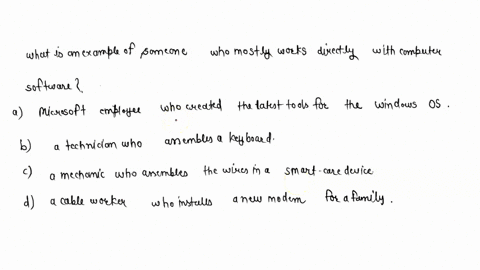 what is an example of someone who mostly works directly with computer
software?
a) Microsoft employee who created the latest tools for the windows OS.
b) a technician who assembles a keyboard.
c) a mechanic who assembles the wires in a smart-care device
d) a cable worker who installs a new modem for a family.